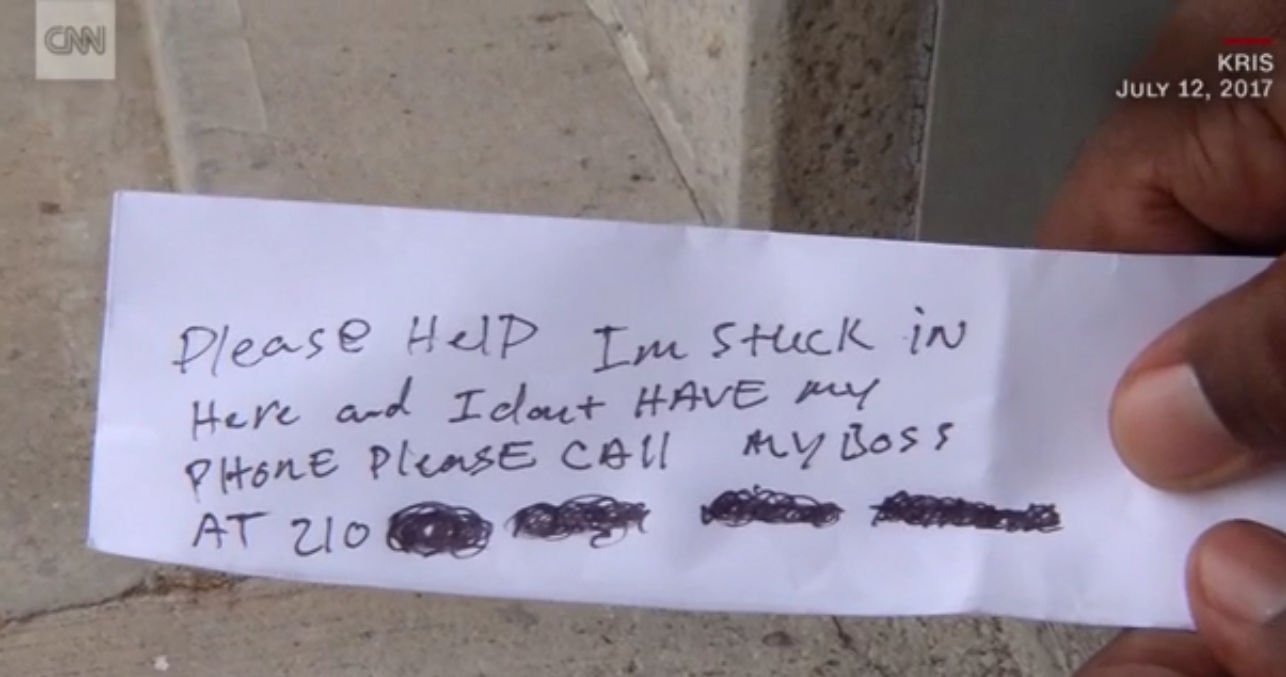 CNN
KRIS
JULY 12, 2017
Please HelP Im stuck in
Here and I dont HAVE my
PHONE PleasE CAll MY BOSS
AT 210